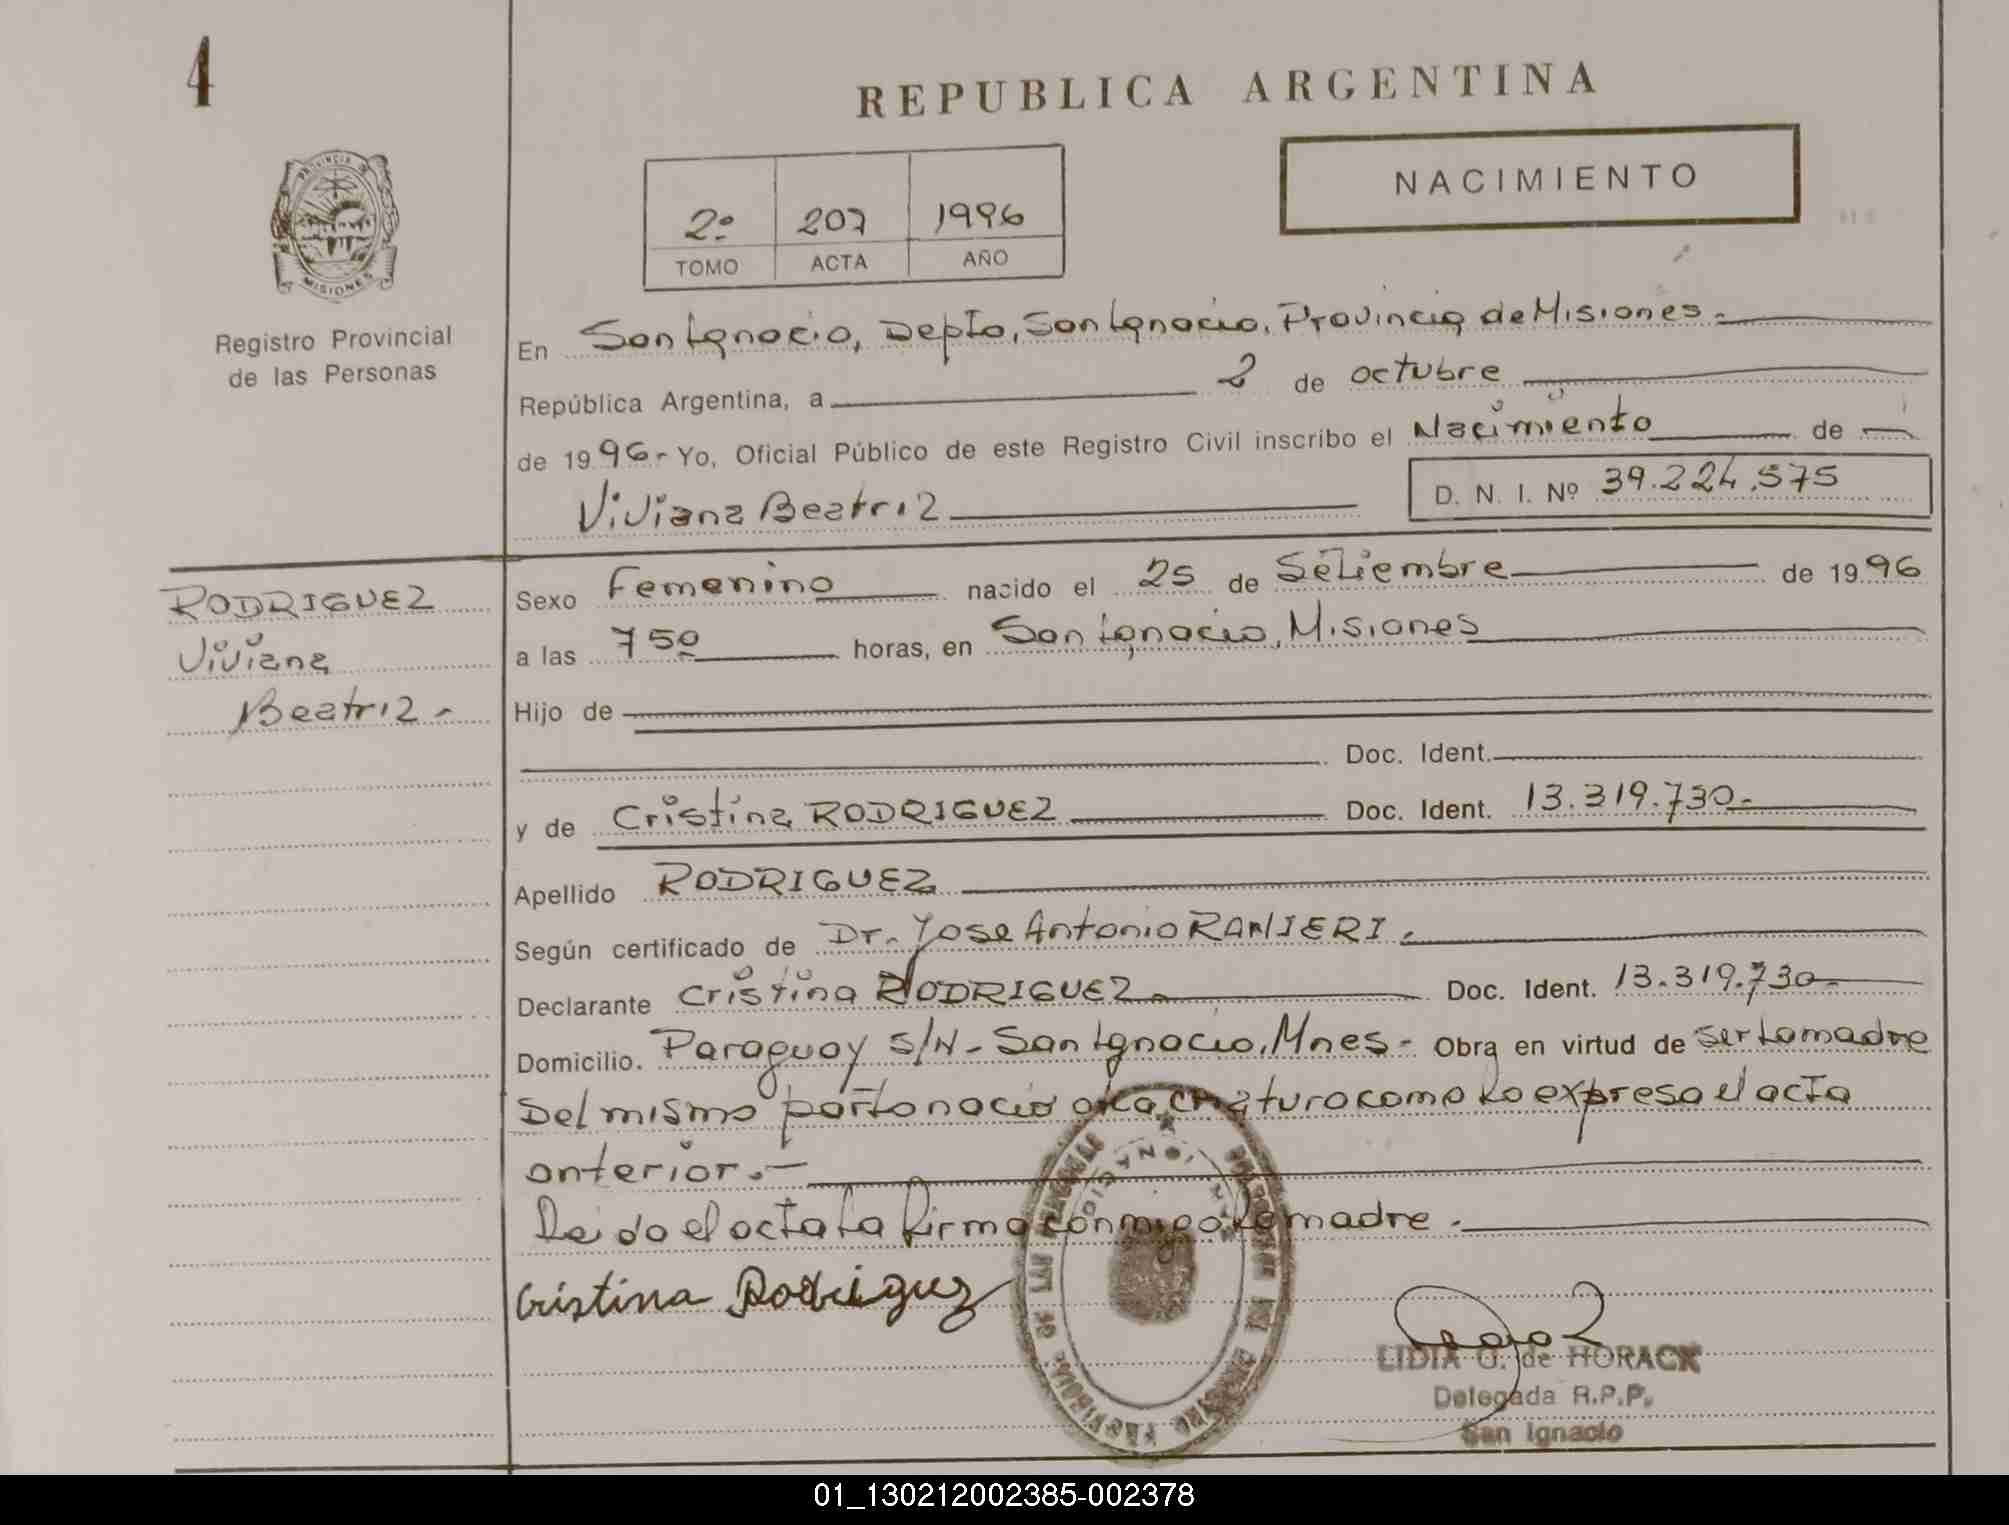 4
REPUBLICA ARGENTINA
NACIMIENTO
2º 207 1996
TOMO ACTA AÑO
PROVINCIA DE
MISIONES
Registro Provincial
de las Personas
En San Ignacio, Depto, San Ignacio, Provincia de Misiones.-
República Argentina, a 2 de octubre
de 1996.- Yo, Oficial Público de este Registro Civil inscribo el Nacimiento de
Viviana Beatriz
D. N. I. Nº 39.224.575
RODRIGUEZ
Viviana
Beatriz -
Sexo Femenino nacido el 25 de Setiembre de 1996
a las 7 50 horas, en San Ignacio, Misiones
Hijo de
Doc. Ident.
y de Cristina RODRIGUEZ Doc. Ident. 13.319.730.-
Apellido RODRIGUEZ
Según certificado de Dr. Jose Antonio RANIERI.
Declarante Cristina RODRIGUEZ Doc. Ident. 13.319.730.-
Domicilio. Paraguay S/N - San Ignacio, Mnes - Obra en virtud de ser La madre
Del mismo parto nacio otra criatura como Lo expresa el acta
anterior.-
Leido el acta La firma conmigo La madre.
Cristina Rodriguez
LIDIA G. de HORACK
Delegada R.P.P.
San Ignacio
REGISTRO PROVINCIAL DE LAS PERSONAS
SAN IGNACIO
01_130212002385-002378